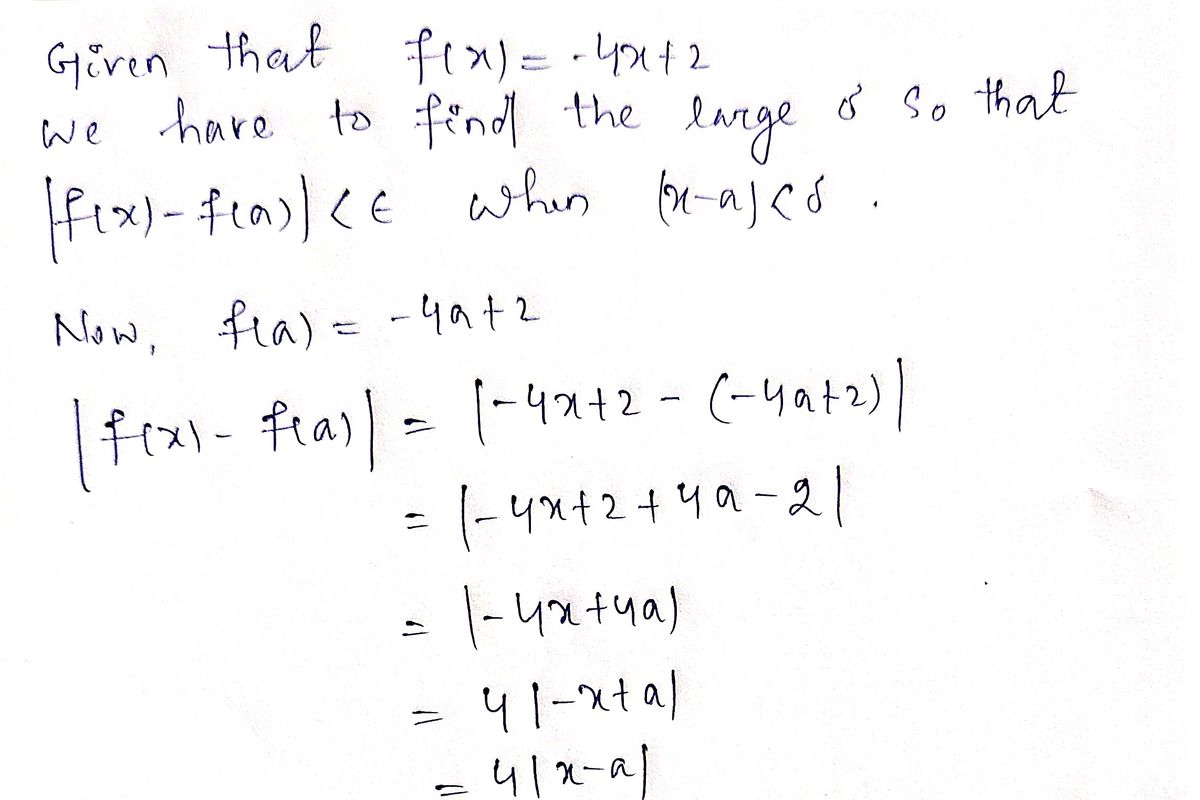 Given that f(x) = -4x+2
we have to find the large δ so that
|f(x)-f(a)| < ϵ when |x-a| < δ .
Now, f(a) = -4a+2
|f(x)- f(a)| = |-4x+2 - (-4a+2)|
= |-4x+2+4a-2|
= |-4x+4a|
= 4|-x+a|
= 4|x-a|